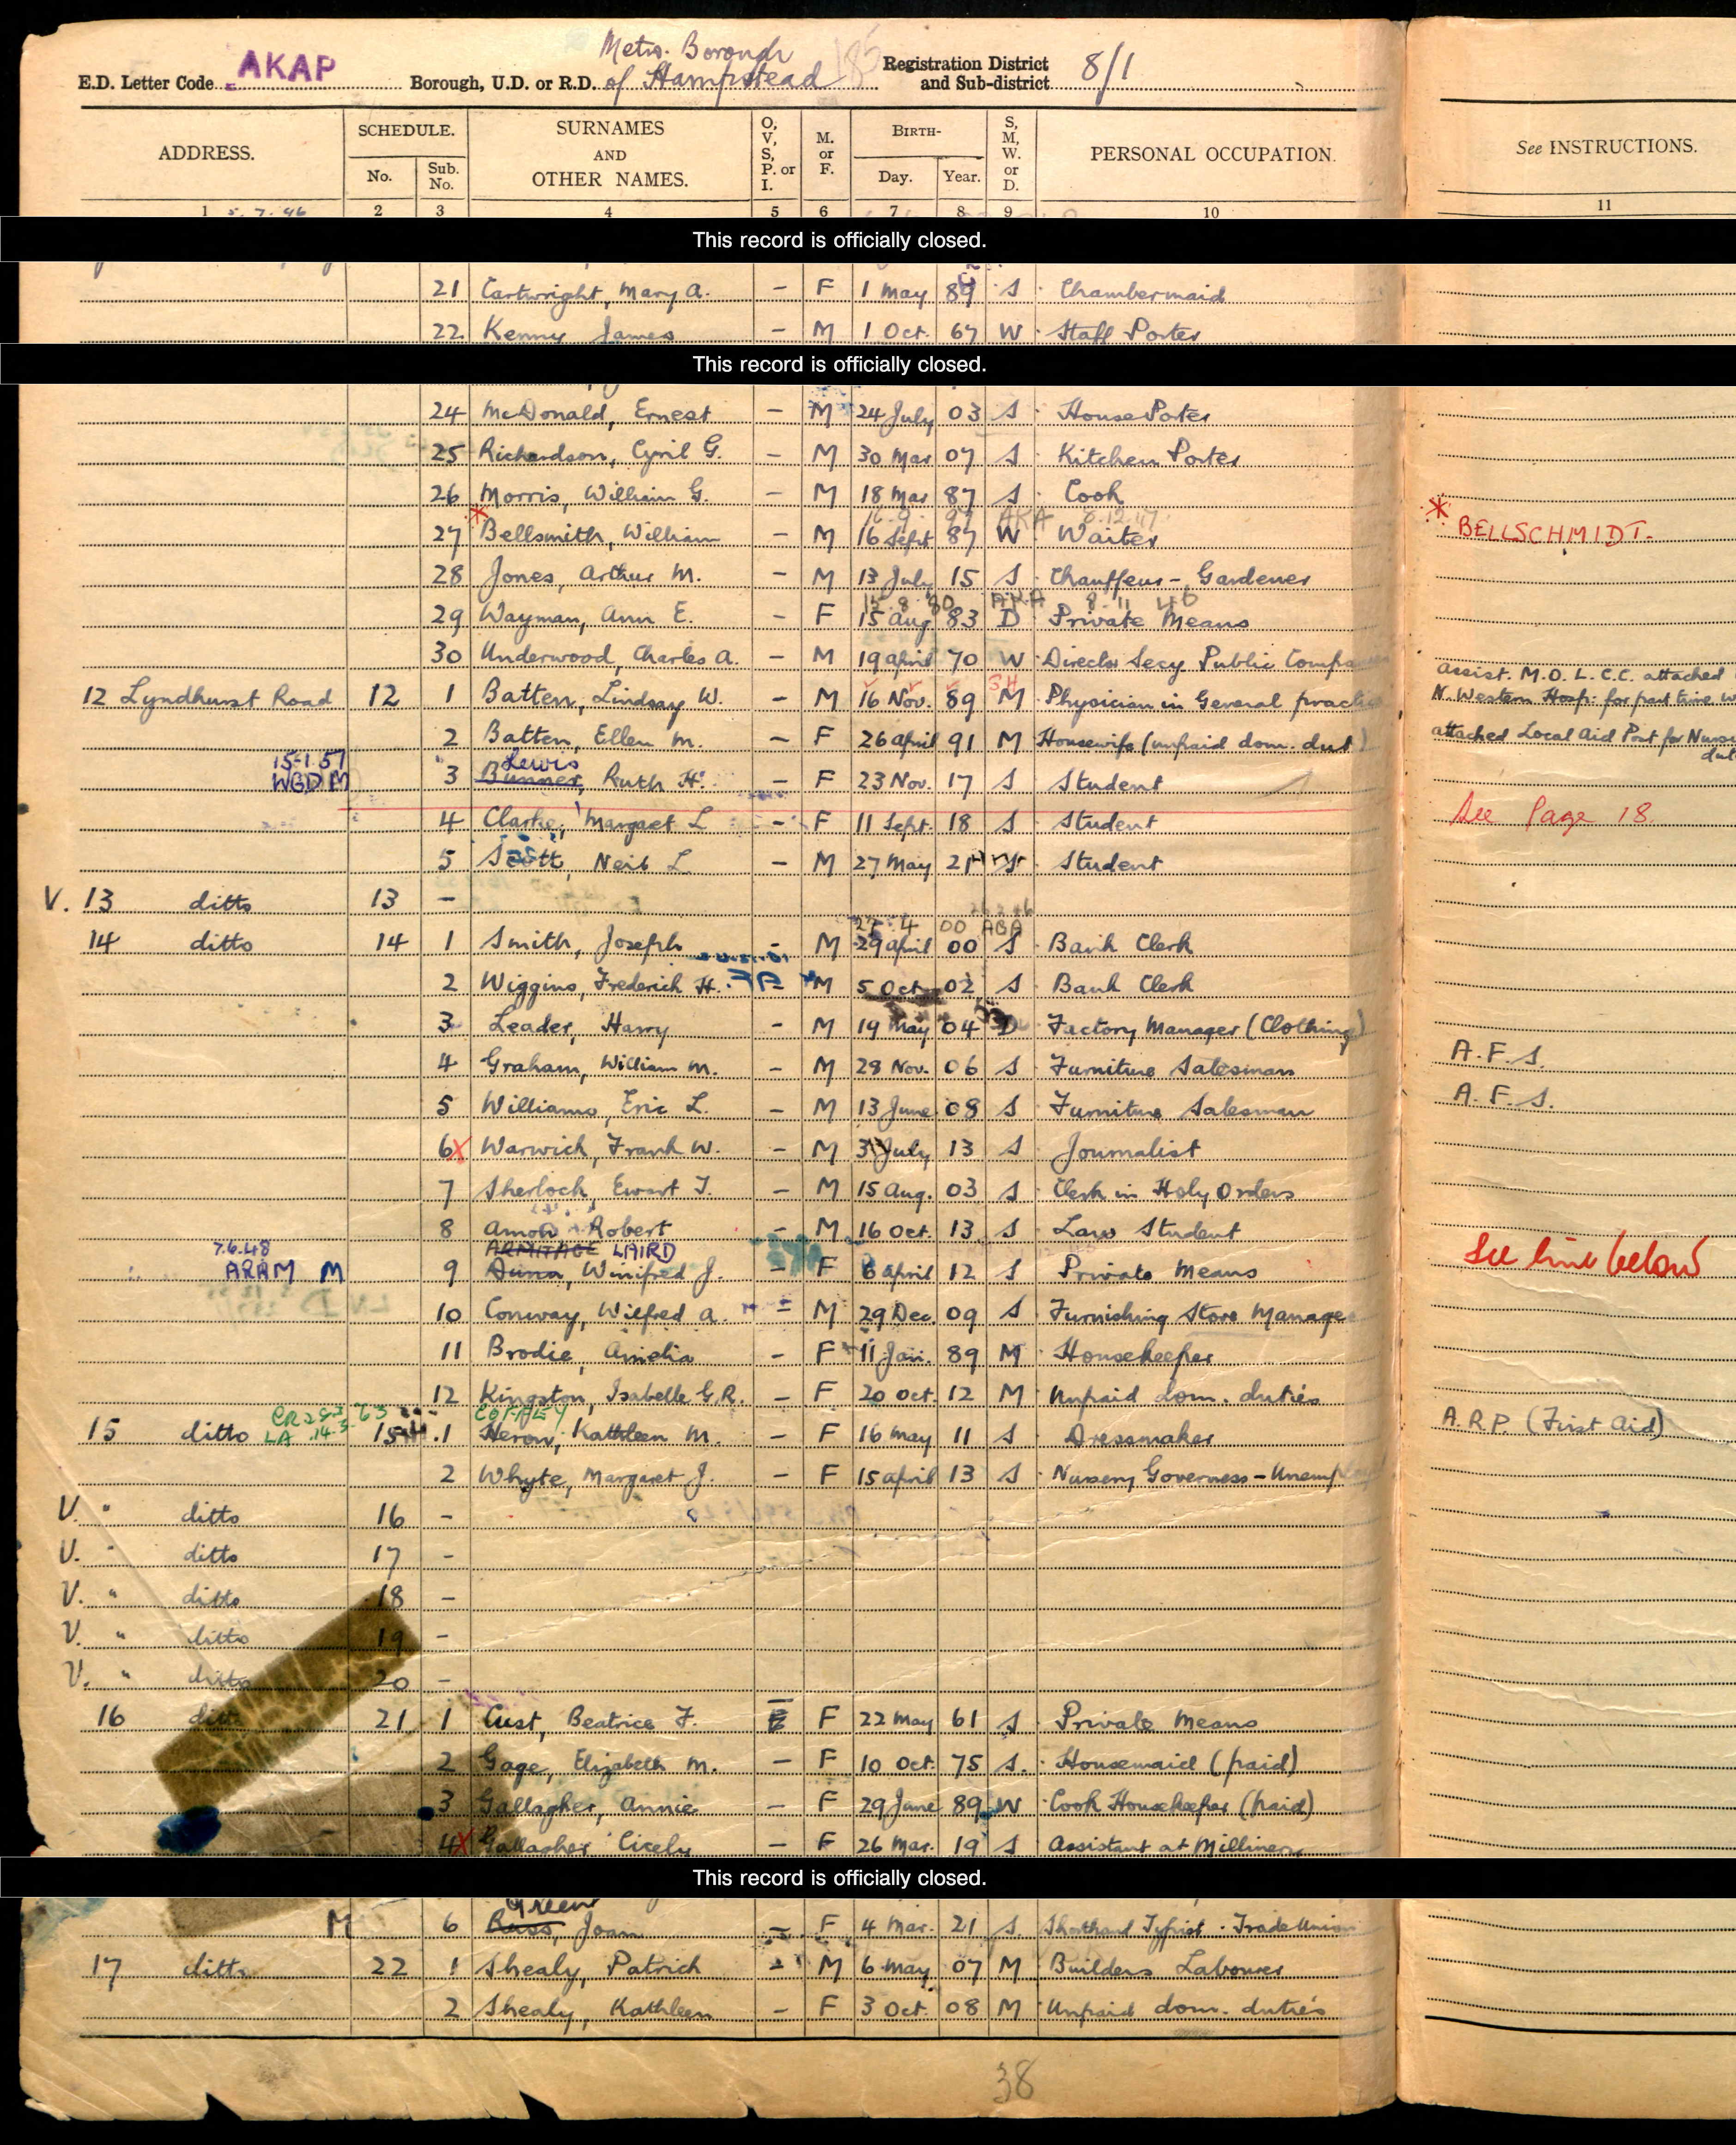 Metro. Borough
E.D. Letter Code AKAP Borough, U.D. or R.D. of Hampstead Registration District and Sub-district 8/1
ADDRESS. SCHEDULE. No. Sub. No. SURNAMES AND OTHER NAMES. O, V, S, P. or I. M. or F. BIRTH- Day. Year. S, M, W. or D. PERSONAL OCCUPATION. See INSTRUCTIONS.
1 2 3 4 5 6 7 8 9 10 11
5.7.46
This record is officially closed.
21 Cartwright, Mary A. - F 1 May 89 S Chambermaid
22 Kenny James - M 1 Oct. 67 W Staff Porter
This record is officially closed.
24 McDonald, Ernest - M 24 July 03 S House Porter
25 Richardson, Cyril G. - M 30 Mar 07 S Kitchen Porter
26 Morris, William G. - M 18 Mar 87 S Cook
16.9. 97 AKA 8.12.47
27 * Bellsmith, William - M 16 Sept 87 W Waiter * BELLSCHMIDT.
28 Jones, Arthur M. - M 13 July 15 S Chauffeur - Gardener
15 8 80 AKA 8 11 46
29 Wayman, Ann E. - F 15 Aug 83 D Private Means
30 Underwood, Charles A. - M 19 April 70 W Director Secy Public Compa
assist. M.O. L.C.C. attached
12 Lyndhurst Road 12 1 Batten, Lindsay W. - M 16 Nov. 89 M Physician in General practic N. Western Hosp: for part time w
2 Batten, Ellen M. - F 26 April 91 M Housewife (unpaid dom. dut) attached Local Aid Post for Nursi
dut
15-1.57 Lewis
WGD M 3 Bunner, Ruth H. - F 23 Nov. 17 S Student
4 Clarke, Margaret L - F 11 Sept. 18 S Student See Page 18.
5 Scott, Neil L. - M 27 May 21 S Student
V. 13 ditto 13 -
27 4 00 ABA
14 ditto 14 1 Smith, Joseph - M 29 April 00 S Bank Clerk
2 Wiggins, Frederick H. - M 5 Oct 02 S Bank Clerk
3 Leader, Harry - M 19 May 04 D Factory Manager (Clothing)
4 Graham, William M. - M 28 Nov. 06 S Furniture Salesman A.F.S.
5 Williams, Eric L. - M 13 June 08 S Furniture Salesman A.F.S.
6 X Warwick, Frank W. - M 3 July 13 S Journalist
7 Sherlock, Ewart T. - M 15 Aug. 03 S Clerk in Holy Orders
8 Amon Robert - M 16 Oct. 13 S Law Student
7.6.48 ARMITAGE LAIRD See line below
ARAM M 9 Winifred J. - F 6 April 12 S Private Means
10 Conway, Wilfred A. - M 29 Dec. 09 S Furnishing Store Manage
11 Brodie, Amelia - F 11 Jan. 89 M Housekeeper
12 Kingston, Isabelle G.R. - F 20 Oct. 12 M Unpaid dom. duties
COPLEY
15 ditto LA 15 1 Heron, Kathleen M. - F 16 May 11 S Dressmaker A.R.P. (First Aid)
2 Whyte, Margaret J. - F 15 April 13 S Nursery Governess - Unemp
V. " ditto 16 -
V. " ditto 17 -
V. " ditto 18 -
V. " ditto 19 -
V. " ditto 20 -
16 ditto 21 1 Cust, Beatrice F. F 22 May 61 S Private Means
2 Gage, Elizabeth M. - F 10 Oct. 75 S. Housemaid (paid)
3 Gallagher, Annie - F 29 June 89 W Cook Housekeeper (paid)
4 X Gallagher Cicely - F 26 Mar. 19 S Assistant at Milliners
This record is officially closed.
Green
M 6 Joan - F 4 Mar. 21 S. Shorthand Typist. Trade Union
17 ditto 22 1 Shealy, Patrick - M 6 May 07 M Builders Labourer
2 Shealy, Kathleen - F 3 Oct. 08 M Unpaid dom. duties
38